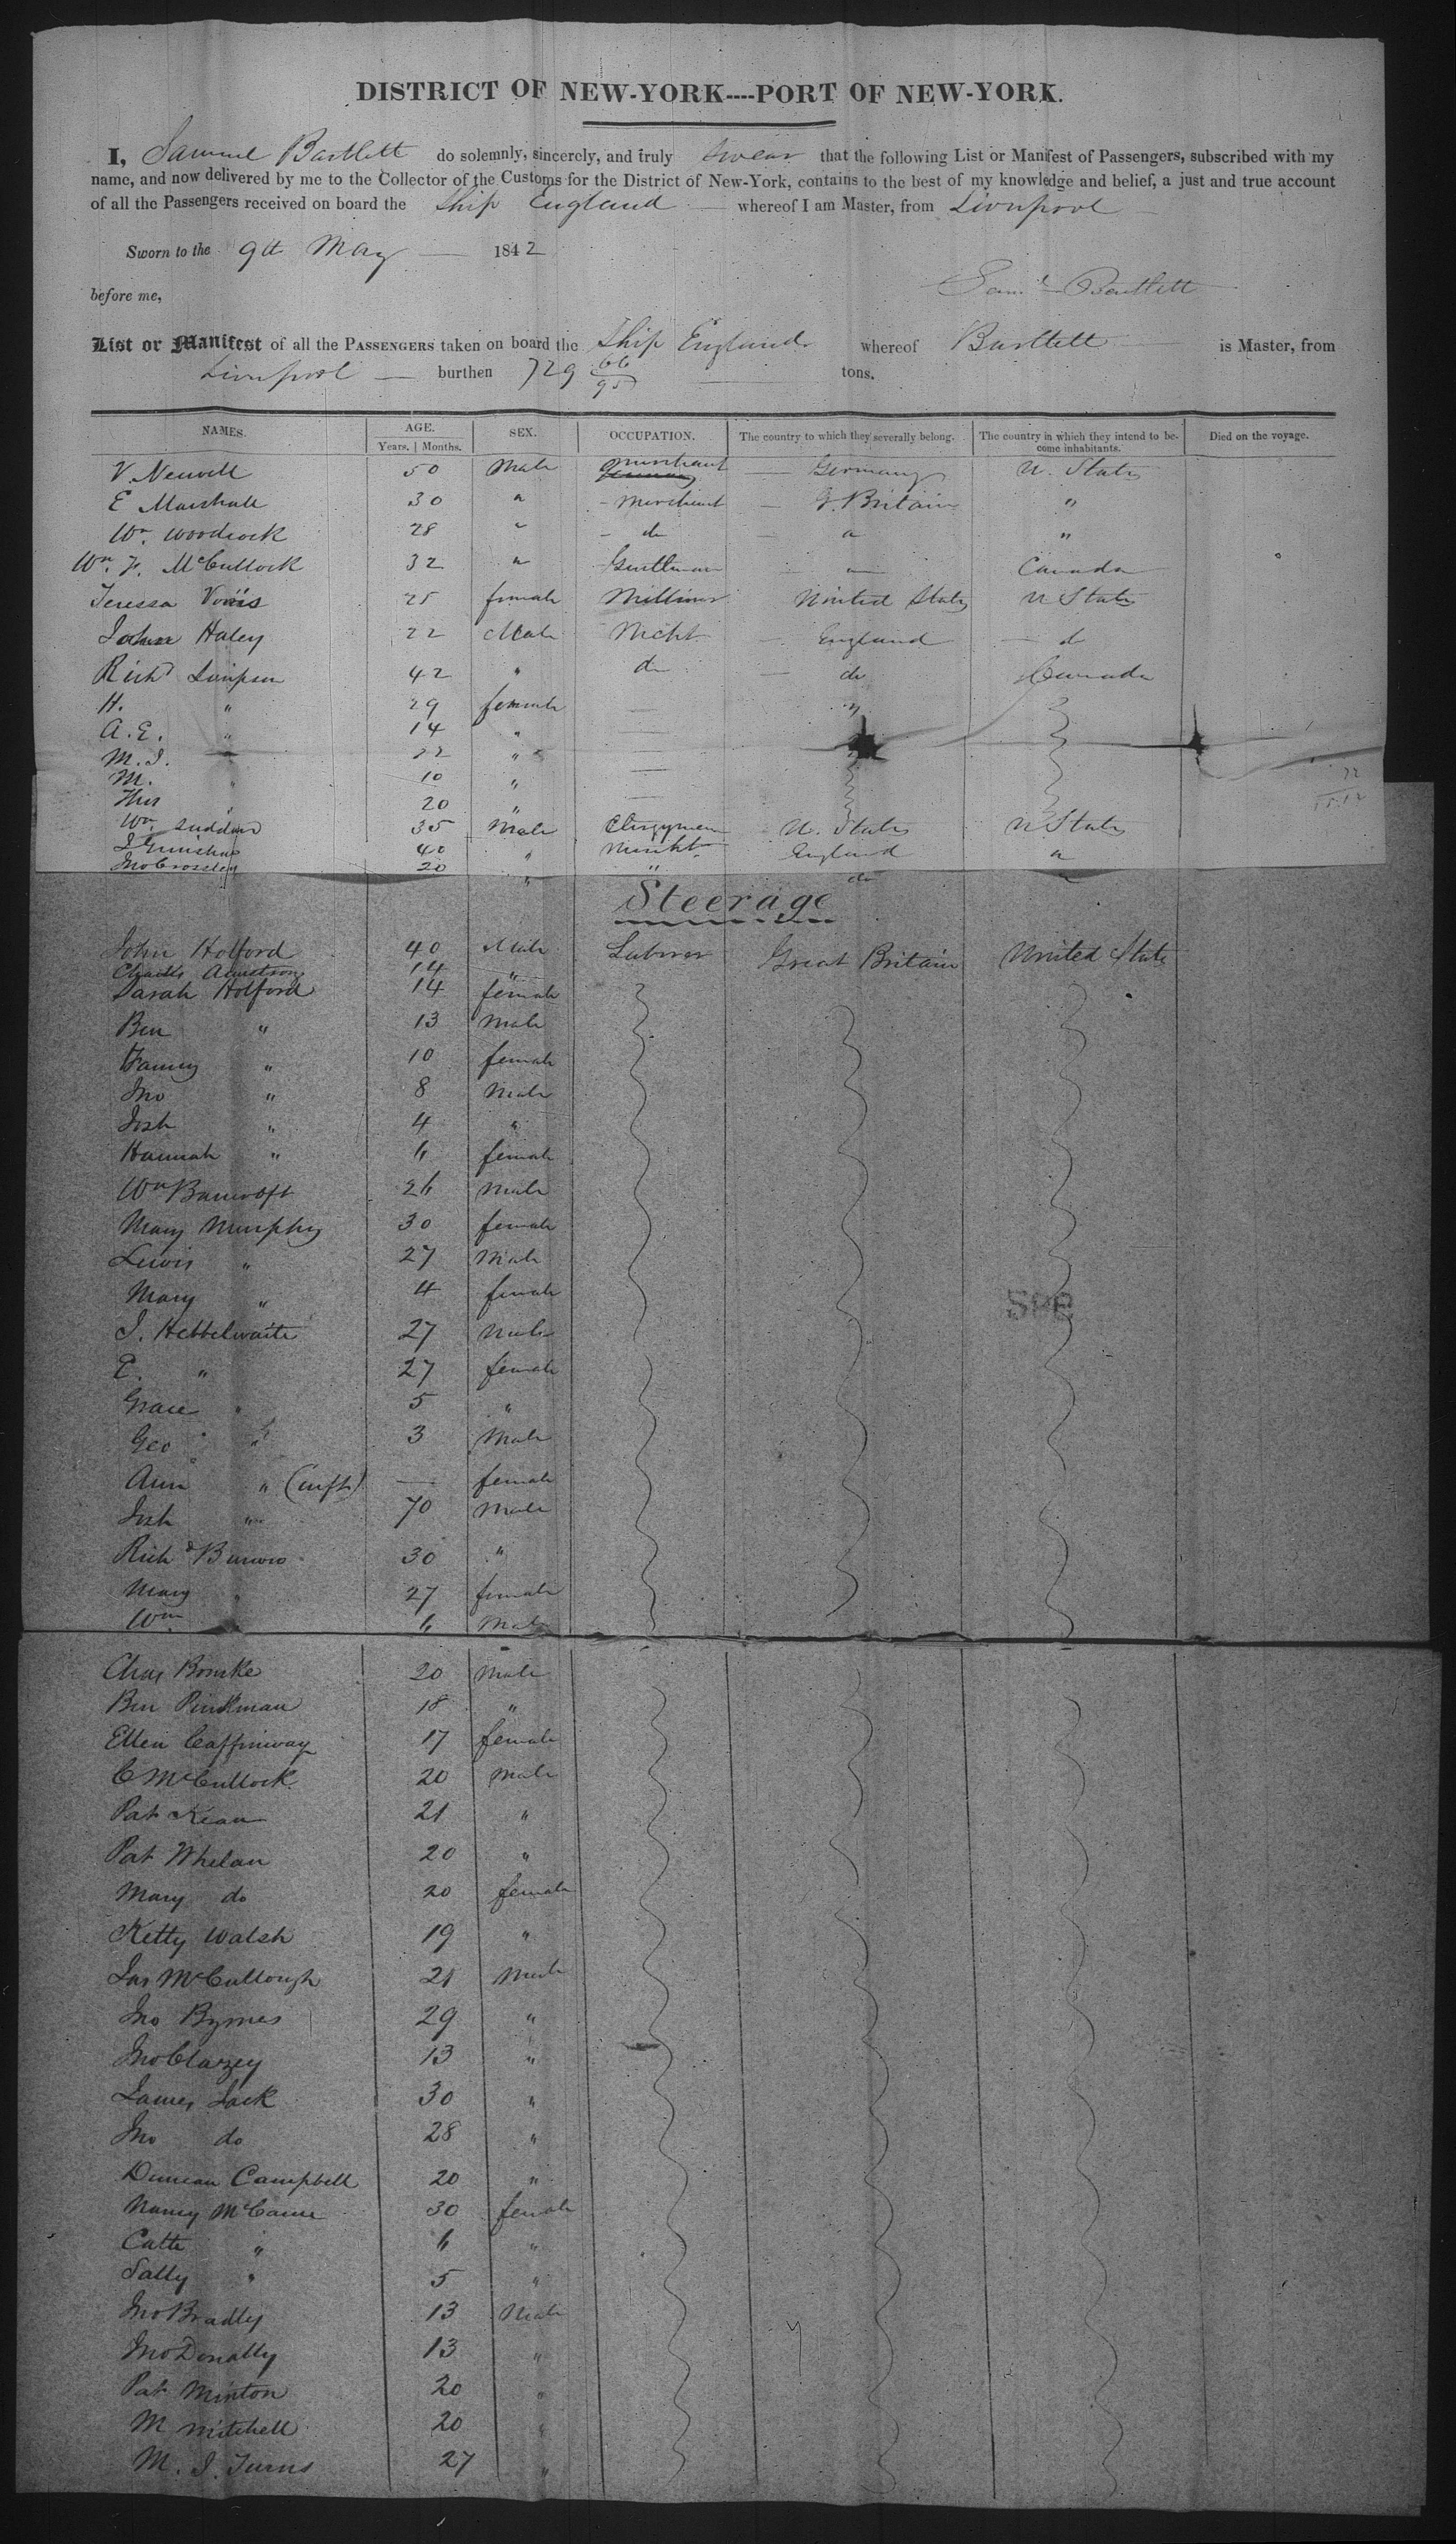 DISTRICT OF NEW-YORK----PORT OF NEW-YORK.
I, Samuel Bartlett do solemnly, sincerely, and truly swear that the following List or Manifest of Passengers, subscribed with my
name, and now delivered by me to the Collector of the Customs for the District of New-York, contains to the best of my knowledge and belief, a just and true account
of all the Passengers received on board the Ship England whereof I am Master, from Liverpool
Sworn to the 9th May 1842
Saml Bartlett
before me,
List or Manifest of all the PASSENGERS taken on board the Ship England whereof Bartlett is Master, from
Liverpool burthen 729 66/95 tons.
NAMES. AGE. Years. | Months. SEX. OCCUPATION. The country to which they severally belong. The country in which they intend to become inhabitants. Died on the voyage.
V. Newell 50 Male Merchant Germany U. States
E Marshall 30 " Merchant G. Britain "
Wm. Woodcock 28 " do " "
Wm. F. McCullock 32 " Gentleman " Canada
Teressa 25 female Milliner United States U States
John Haley 22 Male Mcht England do
Richd Simpson 42 " do do Canada
H. " 29 female "
A. E. " 14 "
M. J. " 22 "
M. " 10 "
" 20 "
Wm. 35 Male Clergyman U. States U States
40 " Mercht England "
Jno Crossley 20 " " do "
Steerage
John Holford 40 Male Laborer Great Britain United States
Charles Armstrong 14 "
Sarah Holford 14 female
Ben " 13 Male
Fanny " 10 female
Jno " 8 Male
Josh " 4 "
Hannah " 6 female
Wm Bancroft 26 Male
Mary Murphy 30 female
Lewis " 27 Male
Mary " 4 female
J. Hebbelwaite 27 Male
E. " 27 female
Grace " 5 "
Geo " 3 Male
Ann " (inft) — female
Josh " 70 Male
Richd Burrows 30 "
Mary " 27 female
Wm " 6 Male
Chas Bourke 20 Male
Ben Pinkman 18 "
Ellen Caffinway 17 female
C McCullock 20 Male
Pat Kean 21 "
Pat Whelan 20 "
Mary do 20 female
Ketty Walsh 19 "
Jas McCullough 21 Male
Jno Byrnes 29 "
Jno Clazey 13 "
James Jack 30 "
Jno do 28 "
Duncan Campbell 20 "
Nancy McCanne 30 female
Cath " 6 "
Sally " 5 "
Jno Bradly 13 Male
Jno Donally 13 "
Pat Minton 20 "
M Mitchell 20 "
M. J. Turns 27 "